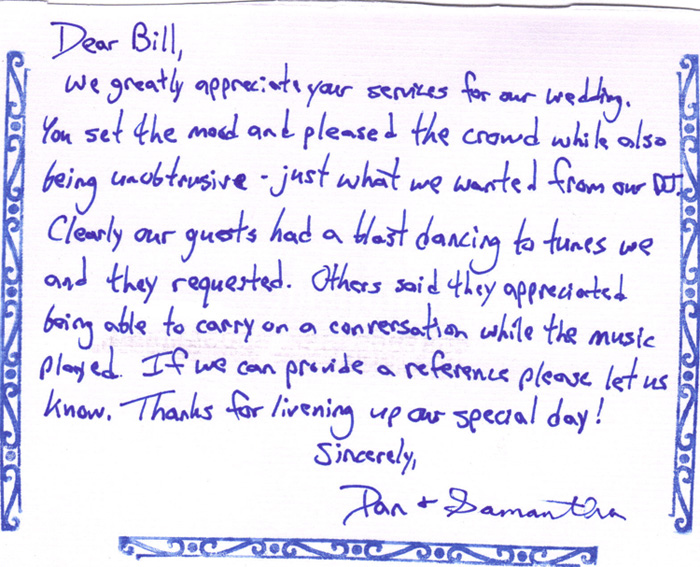 Dear Bill,
We greatly appreciate your services for our wedding.
You set the mood and pleased the crowd while also
being unobtrusive - just what we wanted from our DJ.
Clearly our guests had a blast dancing to tunes we
and they requested. Others said they appreciated
being able to carry on a conversation while the music
played. If we can provide a reference please let us
know. Thanks for livening up our special day!
Sincerely,
Dan + Samantha